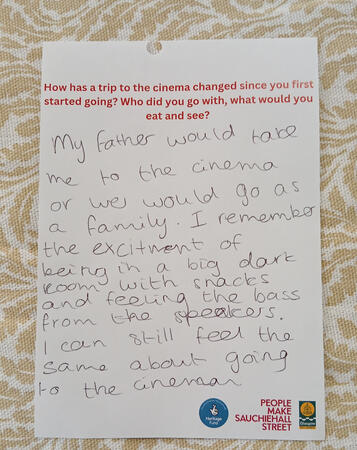 How has a trip to the cinema changed since you first
started going? Who did you go with, what would you
eat and see?
My father would take
me to the cinema
or we would go as
a family. I remember
the excitment of
being in a big dark
room with snacks
and feeling the bass
from the speakers.
I can still feel the
same about going
to the cinema
Heritage
Fund
PEOPLE
MAKE
SAUCHIEHALL
STREET
Glasgow